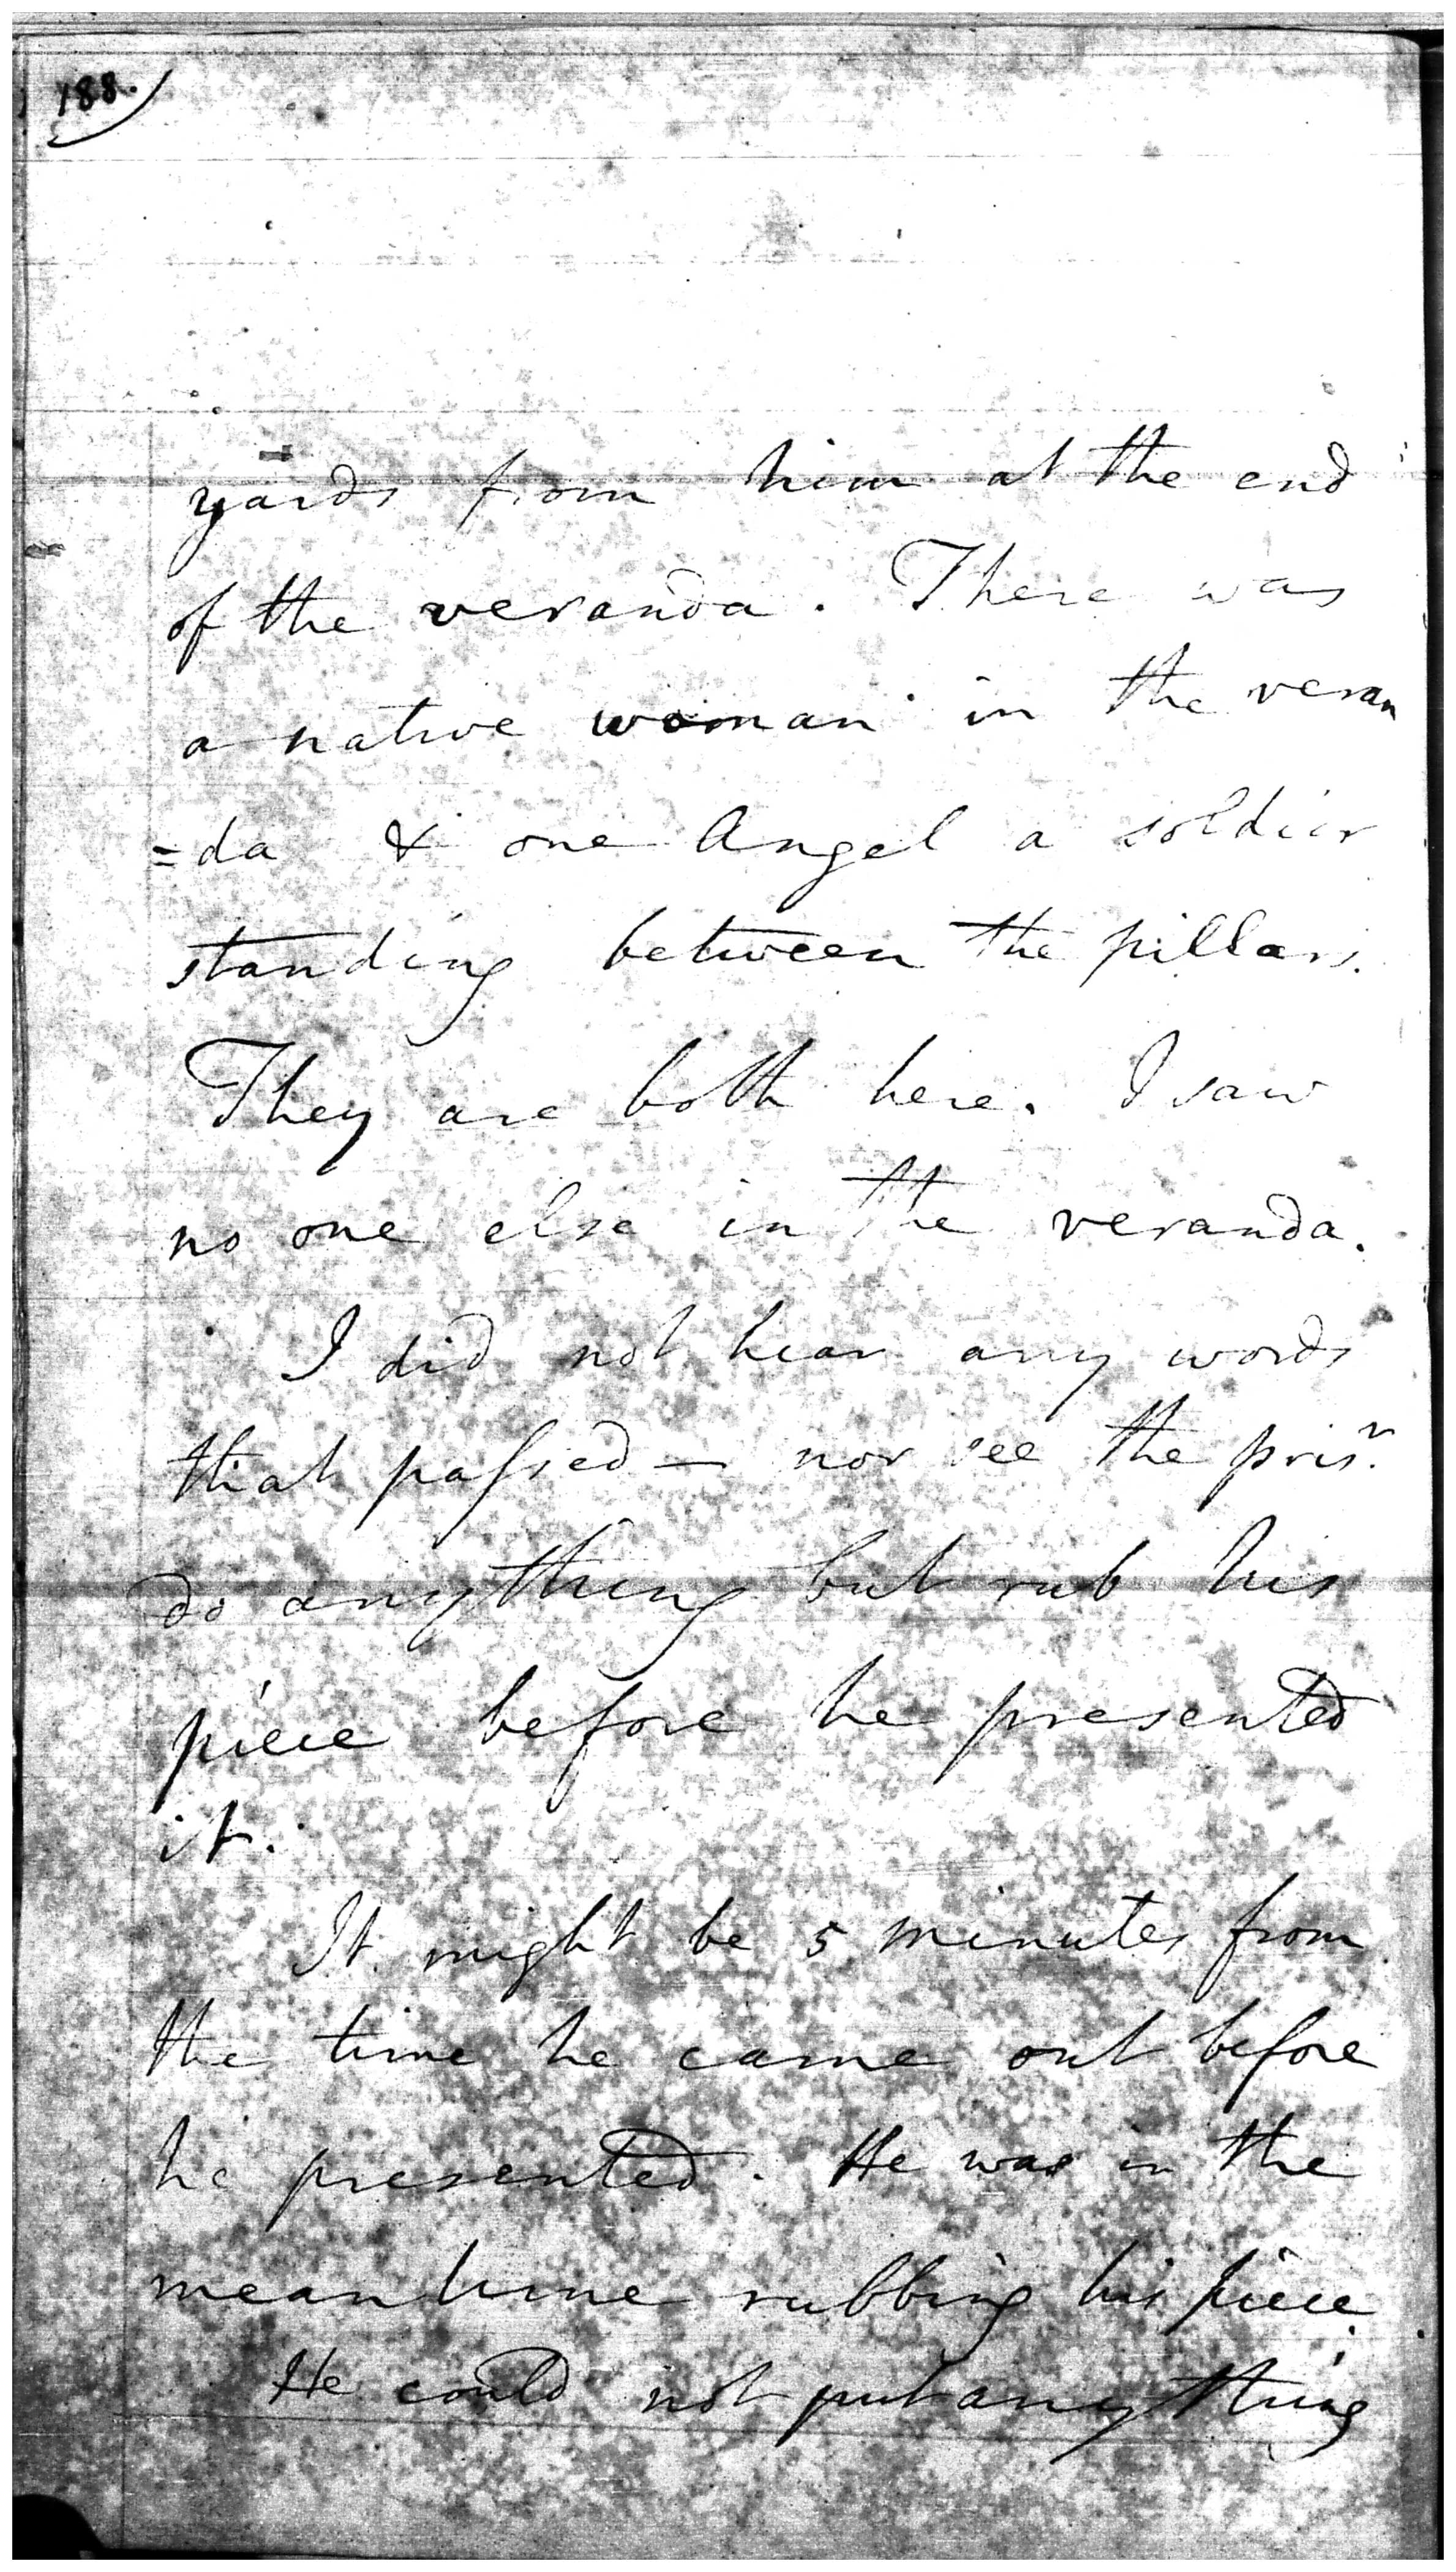 188.
yards from him at the end
of the veranda. There was
a native woman in the veran
=da & one Angel a soldier
standing between the pillars.
They are both here. I saw
no one else in the veranda.
I did not hear any words
that passed — nor see the prisr.
do anything but rub his
piece before he presented
it.
It might be 5 minutes from
the time he came out before
he presented. He was in the
meantime rubbing his piece.
He could not put anything